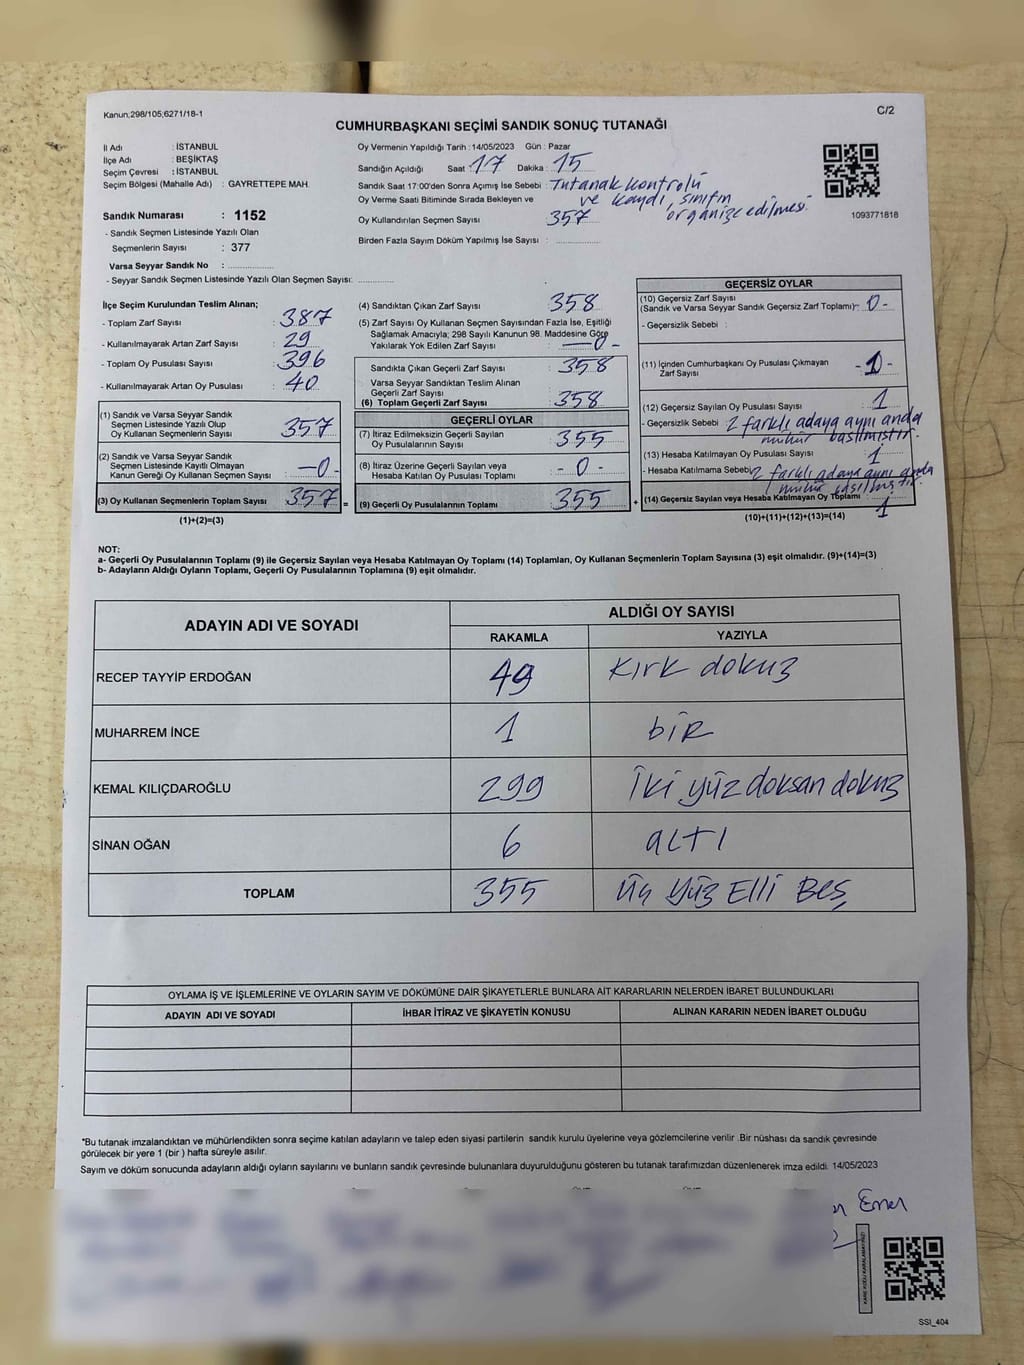 Kanun;298/105;6271/18-1
C/2
CUMHURBAŞKANI SEÇİMİ SANDIK SONUÇ TUTANAĞI
İl Adı : İSTANBUL
İlçe Adı : BEŞİKTAŞ
Seçim Çevresi : İSTANBUL
Seçim Bölgesi (Mahalle Adı) : GAYRETTEPE MAH.
Sandık Numarası : 1152
- Sandık Seçmen Listesinde Yazılı Olan
Seçmenlerin Sayısı : 377
Varsa Seyyar Sandık No :
- Seyyar Sandık Seçmen Listesinde Yazılı Olan Seçmen Sayısı:
Oy Vermenin Yapıldığı Tarih : 14/05/2023 Gün : Pazar
Sandığın Açıldığı Saat 17 Dakika : 15
Sandık Saat 17:00'den Sonra Açımış İse Sebebi : Tutanak kontrolü
ve kaydı, sınıfın
organize edilmesi.
Oy Verme Saati Bitiminde Sırada Bekleyen ve
Oy Kullandırılan Seçmen Sayısı 357
Birden Fazla Sayım Döküm Yapılmış İse Sayısı :
1093771818
İlçe Seçim Kurulundan Teslim Alınan;
- Toplam Zarf Sayısı : 387
- Kullanılmayarak Artan Zarf Sayısı : 29
- Toplam Oy Pusulası Sayısı : 396
- Kullanılmayarak Artan Oy Pusulası : 40
(1) Sandık ve Varsa Seyyar Sandık
Seçmen Listesinde Yazılı Olup
Oy Kullanan Seçmenlerin Sayısı : 357
(2) Sandık ve Varsa Seyyar Sandık
Seçmen Listesinde Kayıtlı Olmayan
Kanun Gereği Oy Kullanan Seçmen Sayısı : -0-
(3) Oy Kullanan Seçmenlerin Toplam Sayısı : 357 =
(1)+(2)=(3)
(4) Sandıktan Çıkan Zarf Sayısı : 358
(5) Zarf Sayısı Oy Kullanan Seçmen Sayısından Fazla İse, Eşitliği
Sağlamak Amacıyla; 298 Sayılı Kanunun 98. Maddesine Göre
Yakılarak Yok Edilen Zarf Sayısı : -0-
Sandıkta Çıkan Geçerli Zarf Sayısı : 358
Varsa Seyyar Sandıktan Teslim Alınan
Geçerli Zarf Sayısı :
(6) Toplam Geçerli Zarf Sayısı : 358
GEÇERLİ OYLAR
(7) İtiraz Edilmeksizin Geçerli Sayılan
Oy Pusulalarının Sayısı : 355
(8) İtiraz Üzerine Geçerli Sayılan veya
Hesaba Katılan Oy Pusulalarının Sayısı : -0-
(9) Geçerli Oy Pusulalarının Toplamı : 355 +
GEÇERSİZ OYLAR
(10) Geçersiz Zarf Sayısı
(Sandık ve Varsa Seyyar Sandık Geçersiz Zarf Toplamı)- 0-
- Geçersizlik Sebebi :
(11) İçinden Cumhurbaşkanı Oy Pusulası Çıkmayan
Zarf Sayısı
(12) Geçersiz Sayılan Oy Pusulası Sayısı : 1
- Geçersizlik Sebebi : 2 farklı adaya aynı anda
mühür basılmıştır.
(13) Hesaba Katılmayan Oy Pusulası Sayısı : 1
- Hesaba Katılmama Sebebi: 2 farklı adaya aynı anda
mühür basılmıştır.
(14) Geçersiz Sayılan veya Hesaba Katılmayan Oy Toplamı : 1
(10)+(11)+(12)+(13)=(14)
NOT:
a- Geçerli Oy Pusulalarının Toplamı (9) ile Geçersiz Sayılan veya Hesaba Katılmayan Oy Toplamı (14) Toplamları, Oy Kullanan Seçmenlerin Toplam Sayısına (3) eşit olmalıdır. (9)+(14)=(3)
b- Adayların Aldığı Oyların Toplamı, Geçerli Oy Pusulalarının Toplamına (9) eşit olmalıdır.
ADAYIN ADI VE SOYADI
ALDIĞI OY SAYISI
RAKAMLA YAZIYLA
RECEP TAYYİP ERDOĞAN 49 kırk dokuz
MUHARREM İNCE 1 bir
KEMAL KILIÇDAROĞLU 299 iki yüz doksan dokuz
SİNAN OĞAN 6 altı
TOPLAM 355 üç yüz Elli Beş
OYLAMA İŞ VE İŞLEMLERİNE VE OYLARIN SAYIM VE DÖKÜMÜNE DAİR ŞİKAYETLERLE BUNLARA AİT KARARLARIN NELERDEN İBARET BULUNDUKLARI
ADAYIN ADI VE SOYADI İHBAR İTİRAZ VE ŞİKAYETİN KONUSU ALINAN KARARIN NEDEN İBARET OLDUĞU
*Bu tutanak imzalandıktan ve mühürlendikten sonra seçime katılan adayların ve talep eden siyasi partilerin sandık kurulu üyelerine veya gözlemcilerine verilir .Bir nüshası da sandık çevresinde
görülecek bir yere 1 (bir ) hafta süreyle asılır.
Sayım ve döküm sonucunda adayların aldığı oyların sayılarını ve bunların sandık çevresinde bulunanlara duyurulduğunu gösteren bu tutanak tarafımızdan düzenlenerek imza edildi. 14/05/2023
KARE KODU KARALAMAYINIZ!
SSI_404